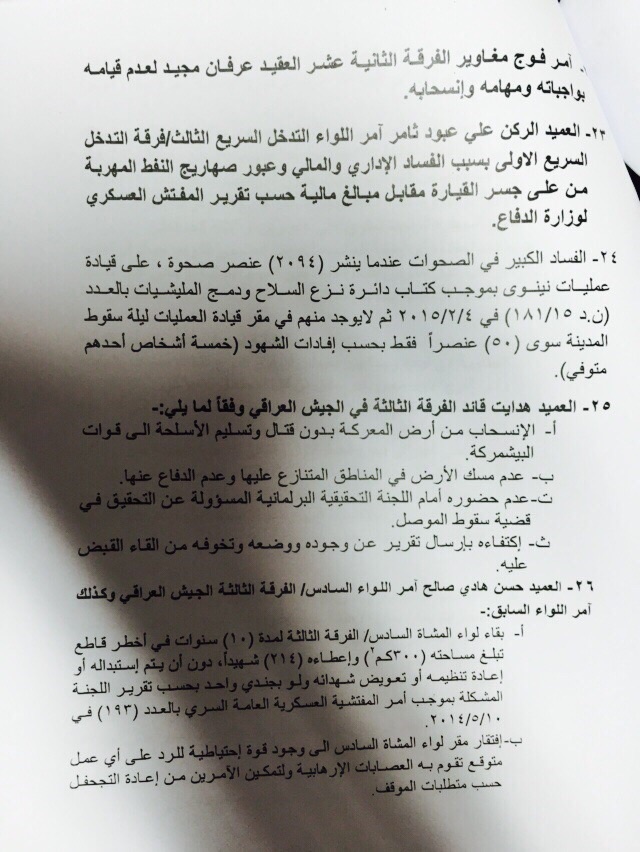 . آمر فوج مغاوير الفرقة الثانية عشر العقيد عرفان مجيد لعدم قيامه
بواجباته ومهامه وإنسحابه.
٢٣- العميد الركن علي عبود ثامر آمر اللواء التدخل السريع الثالث/فرقة التدخل
السريع الاولى بسبب الفساد الإداري والمالي وعبور صهاريج النفط المهربة
من على جسر القيارة مقابل مبالغ مالية حسب تقرير المفتش العسكري
لوزارة الدفاع.
٢٤- الفساد الكبير في الصحوات عندما ينشر (٢٠٩٤) عنصر صحوة ، على قيادة
عمليات نينوى بموجب كتاب دائرة نزع السلاح ودمج المليشيات بالعدد
(ن.د ١٨١/١٥) في ٢٠١٥/٢/٤ ثم لايوجد منهم في مقر قيادة العمليات ليلة سقوط
المدينة سوى (٥٠) عنصراً فقط بحسب إفادات الشهود (خمسة أشخاص أحدهم
متوفي).
٢٥- العميد هدايت قائد الفرقة الثالثة في الجيش العراقي وفقاً لما يلي:-
أ- الإنسحاب من أرض المعركة بدون قتال وتسليم الأسلحة الى قوات
البيشمركة.
ب- عدم مسك الأرض في المناطق المتنازع عليها وعدم الدفاع عنها.
ت- عدم حضوره أمام اللجنة التحقيقية البرلمانية المسؤولة عن التحقيق في
قضية سقوط الموصل.
ث- إكتفاءه بإرسال تقرير عن وجوده ووضعه وتخوفه من القاء القبض
عليه.
٢٦- العميد حسن هادي صالح آمر اللواء السادس/ الفرقة الثالثة الجيش العراقي وكذلك
آمر اللواء السابق:-
أ- بقاء لواء المشاة السادس/ الفرقة الثالثة لمدة (١٠) سنوات في أخطر قاطع
تبلغ مساحته (٣٠٠كم٢) وإعطاءه (٢١٤) شهيداً، دون أن يتم إستبداله أو
إعادة تنظيمه أو تعويض شهدائه ولو بجندي واحد بحسب تقرير اللجنة
المشكلة بموجب أمر المفتشية العسكرية العامة السري بالعدد (١٩٣) في
٢٠١٤/٥/١٠.
ب- إفتقار مقر لواء المشاة السادس الى وجود قوة إحتياطية للرد على أي عمل
متوقع تقوم به العصابات الإرهابية ولتمكين الآمرين من إعادة التجحفل
حسب متطلبات الموقف.